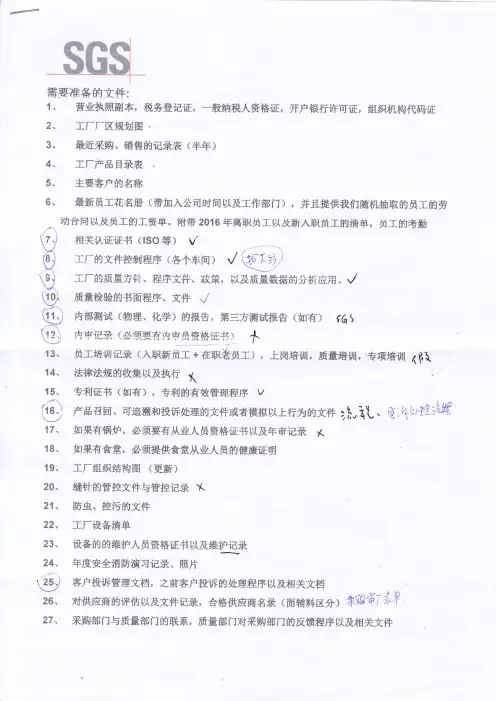 SGS
需要准备的文件:
1、 营业执照副本，税务登记证，一般纳税人资格证，开户银行许可证，组织机构代码证
2、 工厂厂区规划图
3、 最近采购、销售的记录表（半年）
4、 工厂产品目录表
5、 主要客户的名称
6、 最新员工花名册（带加入公司时间以及工作部门），并且提供我们随机抽取的员工的劳
动合同以及员工的工资单。附带 2016 年离职员工以及新入职员工的清单，员工的考勤
7、 相关认证证书（ISO 等） √
8、 工厂的文件控制程序（各个车间） √
9、 工厂的质量方针、程序文件、政策，以及质量数据的分析应用。 √
10、 质量检验的书面程序、文件 √
11、 内部测试（物理、化学）的报告，第三方测试报告（如有） SGS
12、 内审记录（必须要有内审员资格证书） ×
13、 员工培训记录（入职新员工 + 在职老员工），上岗培训，质量培训，专项培训
14、 法律法规的收集以及执行 ×
15、 专利证书（如有）、专利的有效管理程序 √
16、 产品召回、可追溯和投诉处理的文件或者模拟以上行为的文件
17、 如果有锅炉，必须要有从业人员资格证书以及年审记录 ×
18、 如果有食堂，必须提供食堂从业人员的健康证明
19、 工厂组织结构图 （更新）
20、 缝针的管控文件与管控记录 ×
21、 防虫、控污的文件
22、 工厂设备清单
23、 设备的的维护人员资格证书以及维护记录
24、 年度安全消防演习记录、照片
25、 客户投诉管理文档，之前客户投诉的处理程序以及相关文档
26、 对供应商的评估以及文件记录，合格供应商名录（面辅料区分）
27、 采购部门与质量部门的联系，质量部门对采购部门的反馈程序以及相关文件